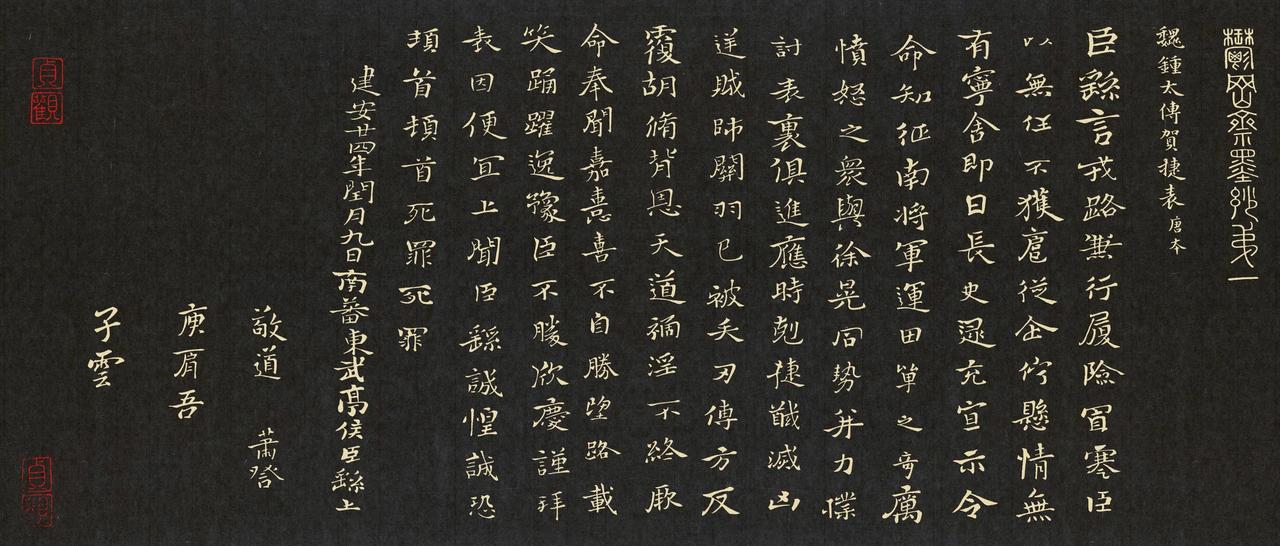 鬱岡齋墨妙第一
魏鍾太傅賀捷表唐本
臣繇言戎路兼行履險冒寒臣
以無任不獲扈從企佇懸情無
有寧舍即日長史逯充宣示令
命知征南將軍運田單之奇厲
憤怒之衆與徐晃同勢并力撲
討表裏俱進應時剋捷馘滅凶
逆賊帥關羽已被矢刃傅方反
覆胡脩背恩天道禍淫不終厥
命奉聞嘉憙喜不自勝望路載
笑踊躍逸豫臣不勝欣慶謹拜
表因便宜上聞臣繇誠惶誠恐
頓首頓首死罪死罪
建安廿四年閏月九日南蕃東武亭侯臣繇上
敬道 蕭登
庾肩吾
子雲
貞觀